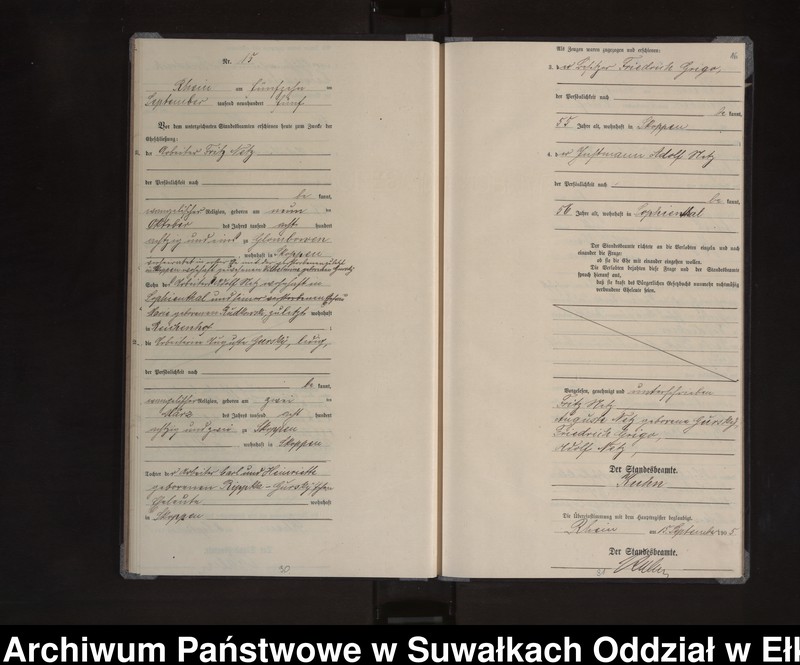 Nr. 15
Rhein am fünfzehn ten
September tausend neunhundert fünf
Vor dem unterzeichneten Standesbeamten erschienen heute zum Zwecke der
Eheschließung:
1. der Arbeiter Fritz Netz
der Persönlichkeit nach
be kannt,
evangelischer Religion, geboren am neun ten
Oktober des Jahres tausend acht hundert
achtzig und eins zu Glombowen
, wohnhaft in Skoppen
Sohn des Arbeiters Adolf Netz wohnhaft in
Sophienthal und
geborenen zuletzt wohnhaft
in Reichenhof ;
2. die Arbeiterin Auguste Gursky, ledig,
der Persönlichkeit nach
be kannt,
evangelischer Religion, geboren am zwei ten
März des Jahres tausend acht hundert
achtzig und zwei zu Skoppen
, wohnhaft in Skoppen
Tochter der Arbeiter Carl und Henriette
geborenen Gursky'schen
Eheleute wohnhaft
in Skoppen
30
Als Zeugen waren zugezogen und erschienen:
16
3. der Besitzer Friedrich Grigo,
der Persönlichkeit nach
be kannt,
55 Jahre alt, wohnhaft in Skoppen ;
4. der Adolf Netz
der Persönlichkeit nach
be kannt,
56 Jahre alt, wohnhaft in Sophienthal
Der Standesbeamte richtete an die Verlobten einzeln und nach
einander die Frage:
ob sie die Ehe mit einander eingehen wollen.
Die Verlobten bejahten diese Frage und der Standesbeamte
sprach hierauf aus,
daß sie kraft des Bürgerlichen Gesetzbuchs nunmehr rechtmäßig
verbundene Eheleute seien.
Vorgelesen, genehmigt und unterschrieben
Fritz Netz
Auguste Netz geborene Gursky,
Friedrich Grigo,
Adolf Netz,
Der Standesbeamte.
Kuhn
Die Übereinstimmung mit dem Hauptregister beglaubigt.
Rhein am 15. September 1905
Der Standesbeamte.
Kuhn
Archiwum Państwowe w Suwałkach Oddział w Ełk